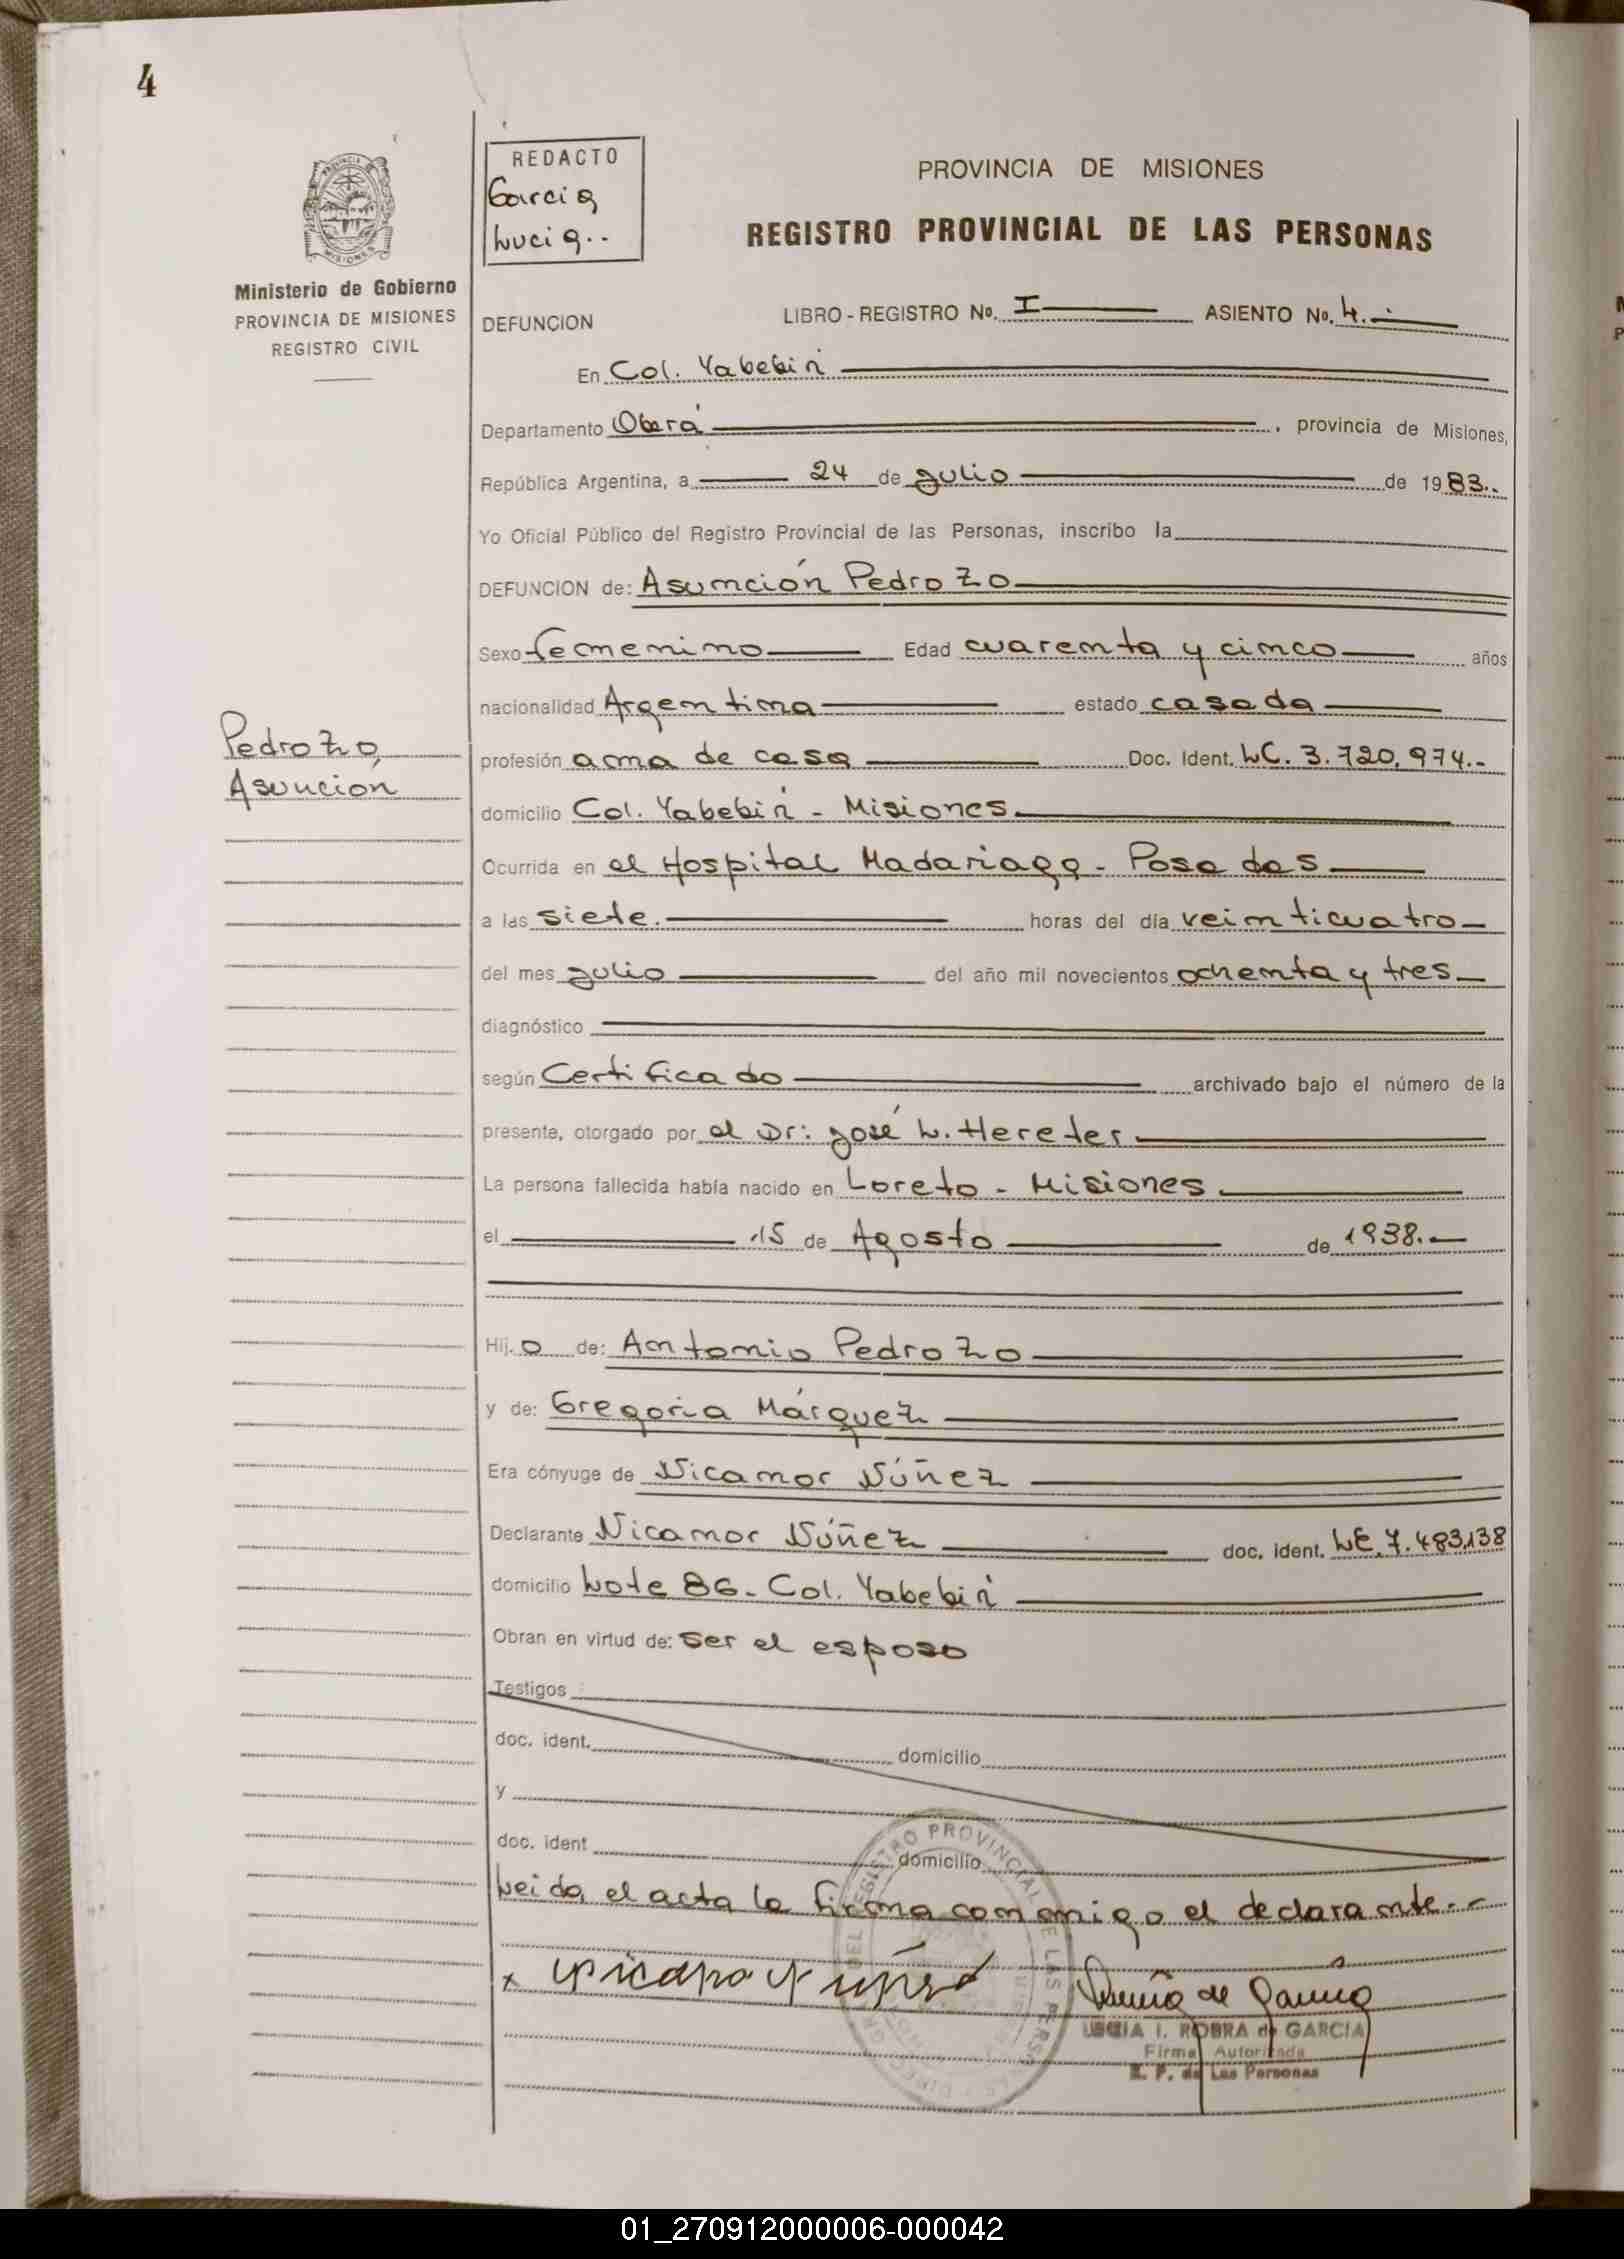 4
REDACTO
Garcia
Lucia..
PROVINCIA DE MISIONES
REGISTRO PROVINCIAL DE LAS PERSONAS
Ministerio de Gobierno
PROVINCIA DE MISIONES
REGISTRO CIVIL
DEFUNCION LIBRO - REGISTRO No. I ASIENTO No. 4.-
En Col. Yabebirí
Departamento Oberá, provincia de Misiones,
República Argentina, a 24 de julio de 1983..
Yo Oficial Público del Registro Provincial de las Personas, inscribo la
DEFUNCION de: Asumción Pedrozo
Sexo femenino Edad cuarenta y cinco años
nacionalidad Argentina estado casada
Pedrozo,
Asunción
profesión ama de casa Doc. Ident. LC. 3.720.974.-
domicilio Col. Yabebirí - Misiones
Ocurrida en el Hospital Madariaga - Posadas
a las siete. horas del día veinticuatro
del mes julio del año mil novecientos ochenta y tres
diagnóstico
según Certificado archivado bajo el número de la
presente, otorgado por el Dr: José L. Hereter
La persona fallecida había nacido en Loreto - Misiones
el 15 de Agosto de 1938.-
Hij.o de: Antonio Pedrozo
y de: Gregoria Márquez
Era cónyuge de Nicanor Núñez
Declarante Nicanor Núñez doc. ident. LE. 7.483.138
domicilio Lote 86 - Col. Yabebirí
Obran en virtud de: ser el esposo
Testigos
doc. ident. domicilio
y
doc. ident domicilio
Leida el acta la firma conmigo el declarante.-
REGISTRO PROVINCIAL DE LAS PERSONAS
LUCIA I. ROBRA de GARCIA
Firma Autorizada
R. P. de Las Personas
01_270912000006-000042